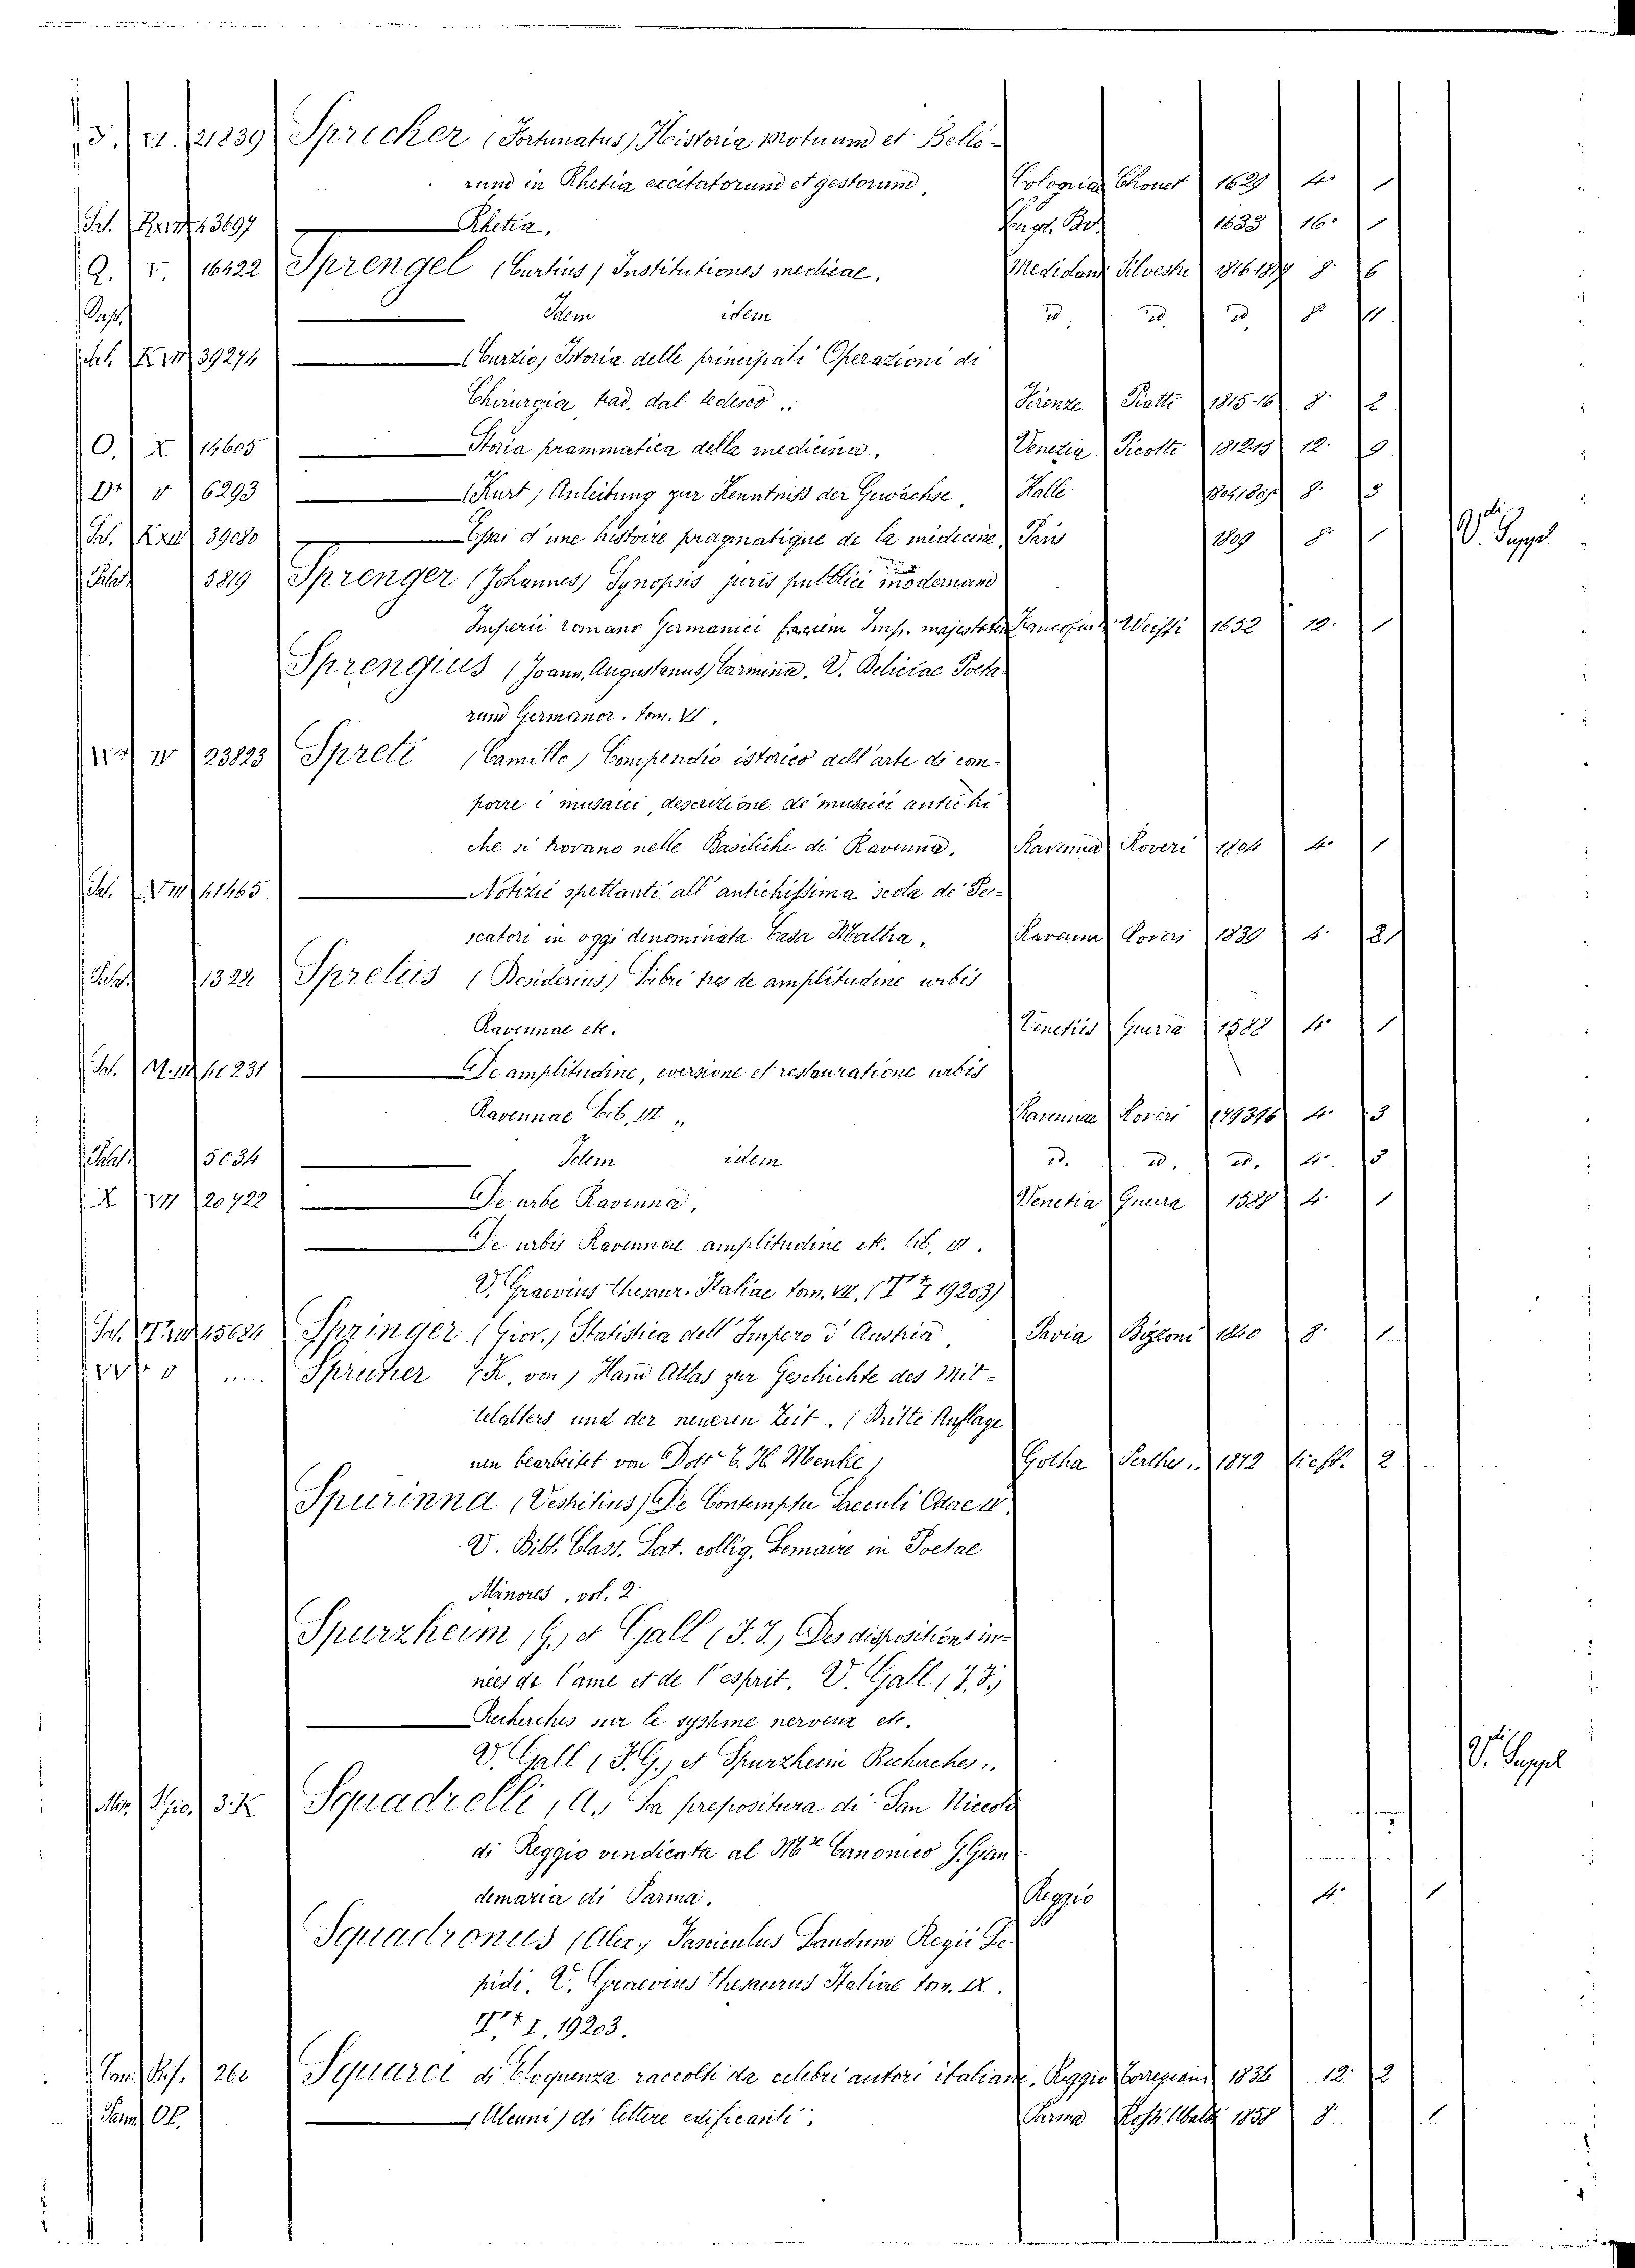 21839 Sprecher (Fortunatus) Historia motuum et Bello-
rum in Rhetia excitatorum et gestorum, Coloniae Chouet 1629 4° 1
Rhetia. 1633 16° 1
Q. V. 16422 Sprengel (Curtius) Institutiones medicae. Mediolani Silvestri 1816 8° 6
Idem idem id. id. id. 8° 11
39274 (Curzio) Istoria delle principali Operazioni di
Chirurgia trad. dal tedesco .. Firenze Piatti 1815-16 8° 2
O. X 14605 Storia prammatica della medicina. Venezia Picotti 1812.15 12° 9
6293 (Kurt) Anleitung zur Kenntniss der Gewächse, Halle 8° 3
39080 Essai d'une histoire pragmatique de la médecine, Paris 1809 8° 1 V. Suppl
5819 Sprenger (Johannes) Synopsis juris pubblici
Imperii romano Germanici faciem Imp. Weissi 1652 12° 1
Sprengius (Joann. Augustanus) Carmina. V. Deliciae Poeta-
rum Germanor. tom. VI.
IV 23823 Spreti (Camillo) Compendio istorico dell'arte di com-
porre i musaici, descrizione de' musaici antichi
che si trovano nelle Basiliche di Ravenna. Ravenna Roveri 1804 4° 1
Notizie spettanti all'antichissima scola de' Pe-
scatori in oggi denominata Casa Matha. Ravenna Roveri 1820 4° 2
1322 Spretus (Desiderius) Libri tres de amplitudine urbis
Ravennae etc. Venetiis Guerra 1588 4° 1
De amplitudine, eversione et restauratione urbis
Ravennae Lib. III .. Ravennae Roveri 179396 4° 3
5034 Idem idem id. id. id. 4°
X VII 20722 De urbe Ravenna. Venetia Guerra 1588 4° 1
De urbis Ravennae amplitudine etc. lib. III.
V. Graevius thesaur. Italiae tom. VII. 19203)
Springer (Giov.) Statistica dell'Impero d'Austria, Pavia Bizzoni 1840 8° 1
.... Spruner (K. von) Hand Atlas zur Geschichte des Mit-
telalters und der neueren Zeit. (Dritte Auflage
neu bearbeitet von Dr Th. Menke) Gotha Perthes .. 1872 2
Spurinna (Vestritius) De Contemptu Saeculi Odae IV.
V. Bibl. Class. Lat. collig. Lemaire in Poetae
Minores, vol. 2
Spurzheim (G.) et Gall (F. J.) Des dispositions in-
nées de l'ame et de l'esprit. V. Gall (F. J.)
Recherches sur le système nerveux etc.
V. Gall (F. G.) et Spurzheim Recherches .. V. Suppl
3.K Squadrelli (A.) La prepositura di San Niccolò
di Reggio vendicata al Mre Canonico G. Gian
demaria di Parma. Reggio 4° 1
Squadronus (Alex.) Fasciculus Laudum Regii Le-
pidi. V. Graevius thesaurus Italiae tom. IX.
19203.
260 Squarci di Eloquenza raccolti da celebri autori italiani. Reggio 1836 12° 2
Parm. OP. (Alcuni) di lettere edificanti. Parma Rossi Ubaldi 1858 8° 1